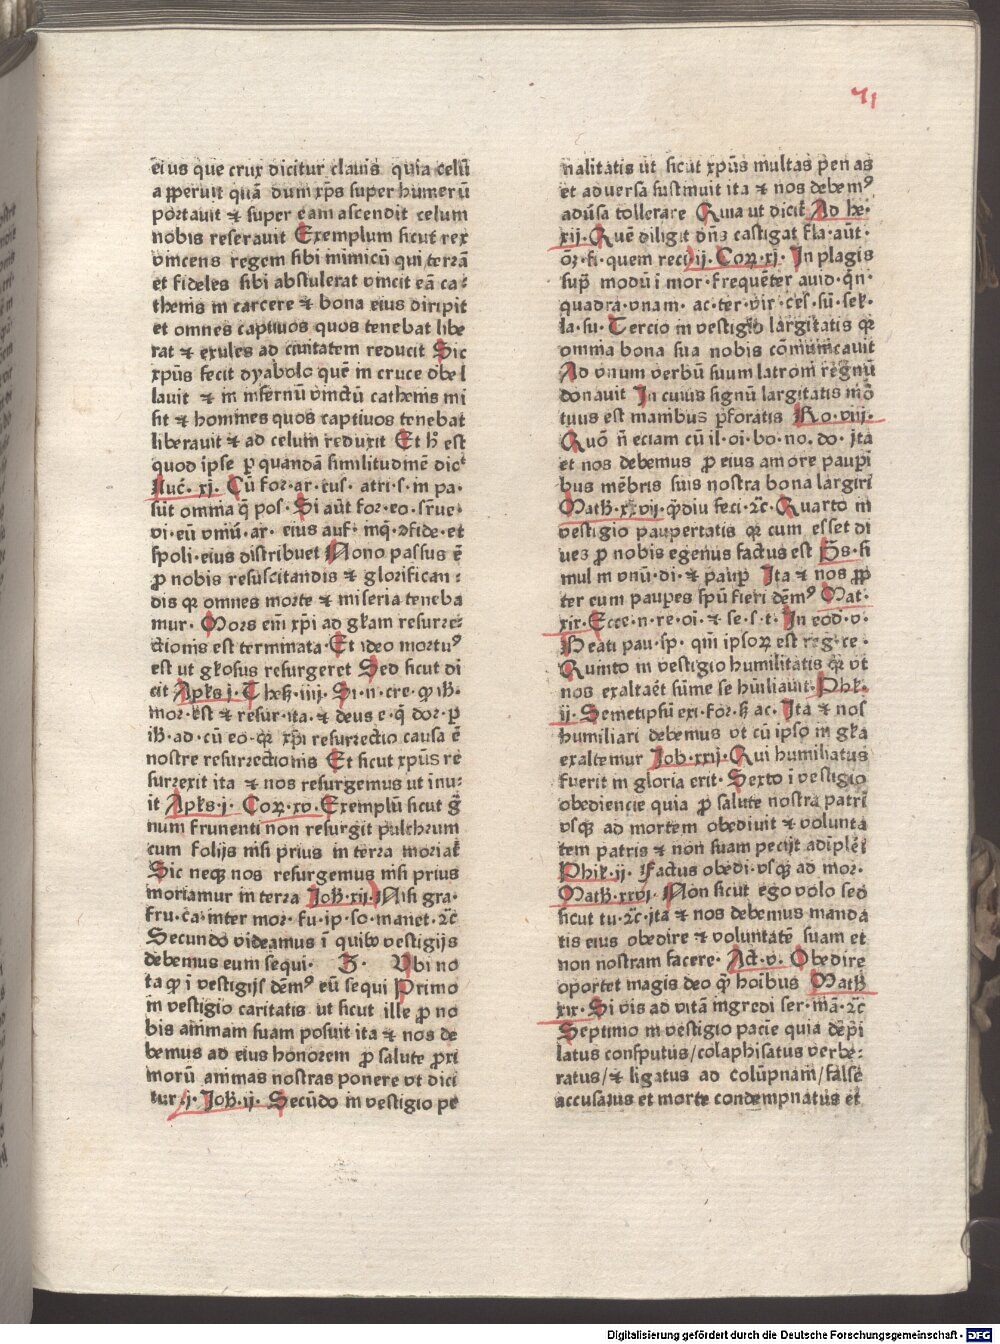 71
eius que crux dicitur clauis quia celū
apperuit quā dum xp̄s super humerū
portauit et super eam ascendit celum
nobis reserauit Exemplum sicut rex
vincens regem sibi inimicū qui terrā
et fideles sibi abstulerat vincit eū ca⸗
thenis in carcere et bona eius diripit
et omnes captiuos quos tenebat libe
rat et exules ad ciuitatem reducit Sic
xpūs fecit dyabolo quē in cruce debel
lauit et in infernū vinctū cathenis mi
sit et homines quos captiuos tenebat
liberauit et ad celum reduxit Et h̄ est
quod ipse p quandā similitudinē dict
Luc̄. xj. Cū for·ar·cus· atri·s·in pa·
sūt omnia q̄ pos· Si aūt for·eo·sr̄ue⸗
ui·eū vniū·ar· eius auf· inq̄·ꝯfide·et
spoli·eius distribuet Nono passus ē
ꝓ nobis resuscitandis et glorifican⸗
dis qr omnes morte et miseria teneba
mur· Mors eni xp̄i ad gl̄am resurre⸗
ctionis est terminata· Et ideo mortuꝰ
est ut gl̄osus resurgeret Sed sicut di
cit Apl̄s j. Thess iiij. Si·n·cre·qꝫ ih̄·
mor·est et resur·ita·et deus e·q̄ dor·p
ih̄·ad·cū eo·qr xp̄i resurrectio causa ē
nostre resurrectionis Et sicut xpūs re
surrexit ita et nos resurgemus ut inu⸗
it Apl̄s·j· Corꝝ·xv·Exemplū sicut ḡ
num frumenti non resurgit pulchrum
cum folijs nisi prius in terra moriat
Sic neqꝫ nos resurgemus nisi prius
moriamur in terra Joh̄·xij· Nisi gra·
fru·ca·inter mor·fu·ip·so·manet·ꝛc̄
Secundo videamus ī quibꝰ vestigijs
debemus eum sequi· 3· Vbi no
ta qꝫ ī vestigijs dēmꝰ eū sequi Primo
in vestigio caritatis ut sicut ille ꝓ no
bis animam suam posuit ita et nos de
bemus ad eius honorem ꝓ salute ꝓxi
morū animas nostras ponere vt dici
tur·j· Joh̄·ij· Secūdo in vestigio pe
nalitatis ut sicut xpūs multas penas
et aduersa sustinuit ita et nos debemꝰ
adūsa tollerare Quia ut dicit Ad he·
xij. Quē diligit dn̄s castigat fla·aūt·
om̄·fi·quem reci·ij. Corꝝ·xj· In plagis
sup̄ modū i mor·frequēter auid·q̄n·
quadra·vnam·ac·ter·vir·ces·sū·sel·
la·su·Tercio in vestigio largitatis qr
omnia bona sua nobis cōmunicauit
Ad vnum verbū suum latroni regnū
donauit In cuius signū largitatis mo
tuus est manibus p̄foratis Ro·viij·
Quō n̄ eciam cū il·oi·bo·no·do·ita
et nos debemus ꝓ eius amore paupi
bus mēbris suis nostra bona largiri
Math̄·xxvij·q̄diu feci·ꝛc̄·Quarto in
vestigio paupertatis qr cum esset di
ues ꝓ nobis egenus factus est P̄s·si
mul in vnū·di·et paup̄ Ita et nos ꝓp
ter eum paupes spū fieri dēmꝰ Mat·
xix·Ecce·n·re·oi·et se·s·t·In eod·v·
Beati pau·sp· qm̄ ipsorꝝ est reg·ce·
Quinto in vestigio humilitatis qr vt
nos exaltaēt sūme se hūiliauit·Phil·
ij·Semetipsū exi·for·ẜ ac·Ita et nos
humiliari debemus vt cū ipso in gl̄a
exaltemur Job·xxij·Qui humiliatus
fuerit in gloria erit·Sexto ī vestigio
obediencie quia ꝓ salute nostra patri
vsqꝫ ad mortem obediuit et volunta
tem patris et non suam pecijt adīplēi
Phil·ij· Factus obedi·vsqꝫ ad mor·
Math̄·xxvj·Non sicut ego volo sed
sicut tu·ꝛc̄·ita et nos debemus manda
tis eius obedire et voluntatē suam et
non nostram facere·Act·v·Obedire
oportet magis deo q̄ hoībus Math̄
xix·Si vis ad vitā ingredi ser·mā·ꝛc̄
Septimo in vestigio pacie quia dēpi
latus consputus/colaphisatus verbe⸗
ratus/et ligatus ad colūpnam/false
accusatus et morte condempnatus et
Digitalisierung gefördert durch die Deutsche Forschungsgemeinschaft - DFG